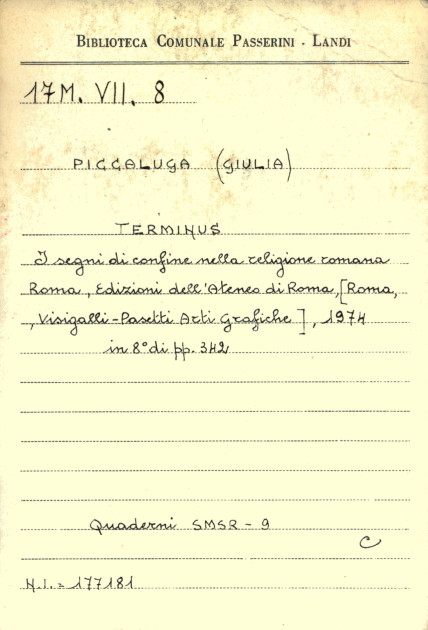 BIBLIOTECA COMUNALE PASSERINI - LANDI
17M. VII. 8
PICCALUGA (GIULIA)
TERMINUS
I segni di confine nella religione romana
Roma, Edizioni dell'Ateneo di Roma, [Roma,
, Visigalli-Pasetti Arti Grafiche], 1974
in 8° di pp. 342
Quaderni SMSR - 9
C
N.I. = 177181